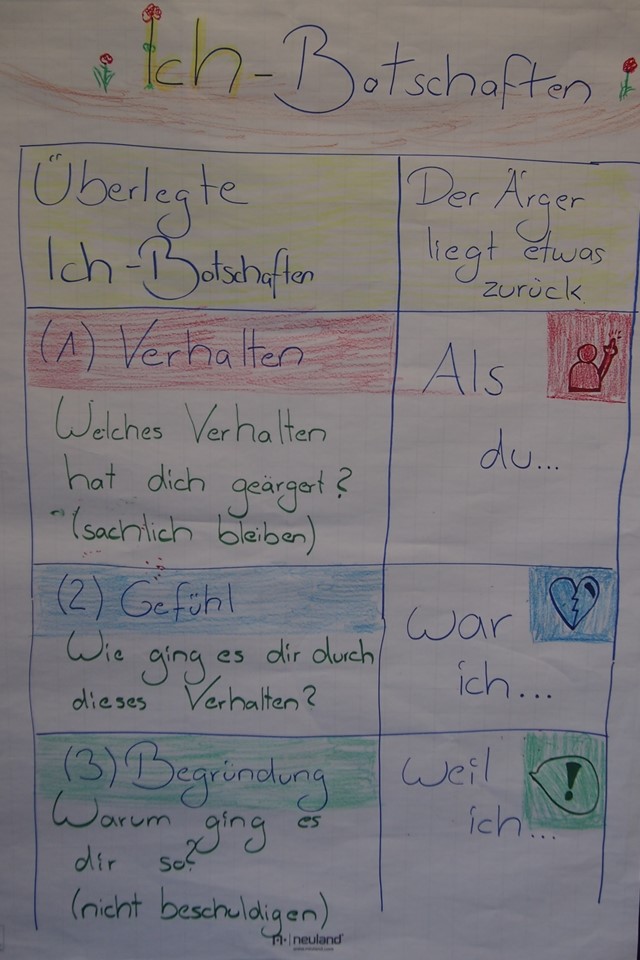 Ich-Botschaften
Überlegte
Ich-Botschaften
Der Ärger
liegt etwas
zurück
(1) Verhalten
Welches Verhalten
hat dich geärgert?
(sachlich bleiben)
Als
du...
(2) Gefühl
Wie ging es dir durch
dieses Verhalten?
war
ich...
(3) Begründung
Warum ging es
dir so?
(nicht beschuldigen)
Weil
ich...
!
neuland